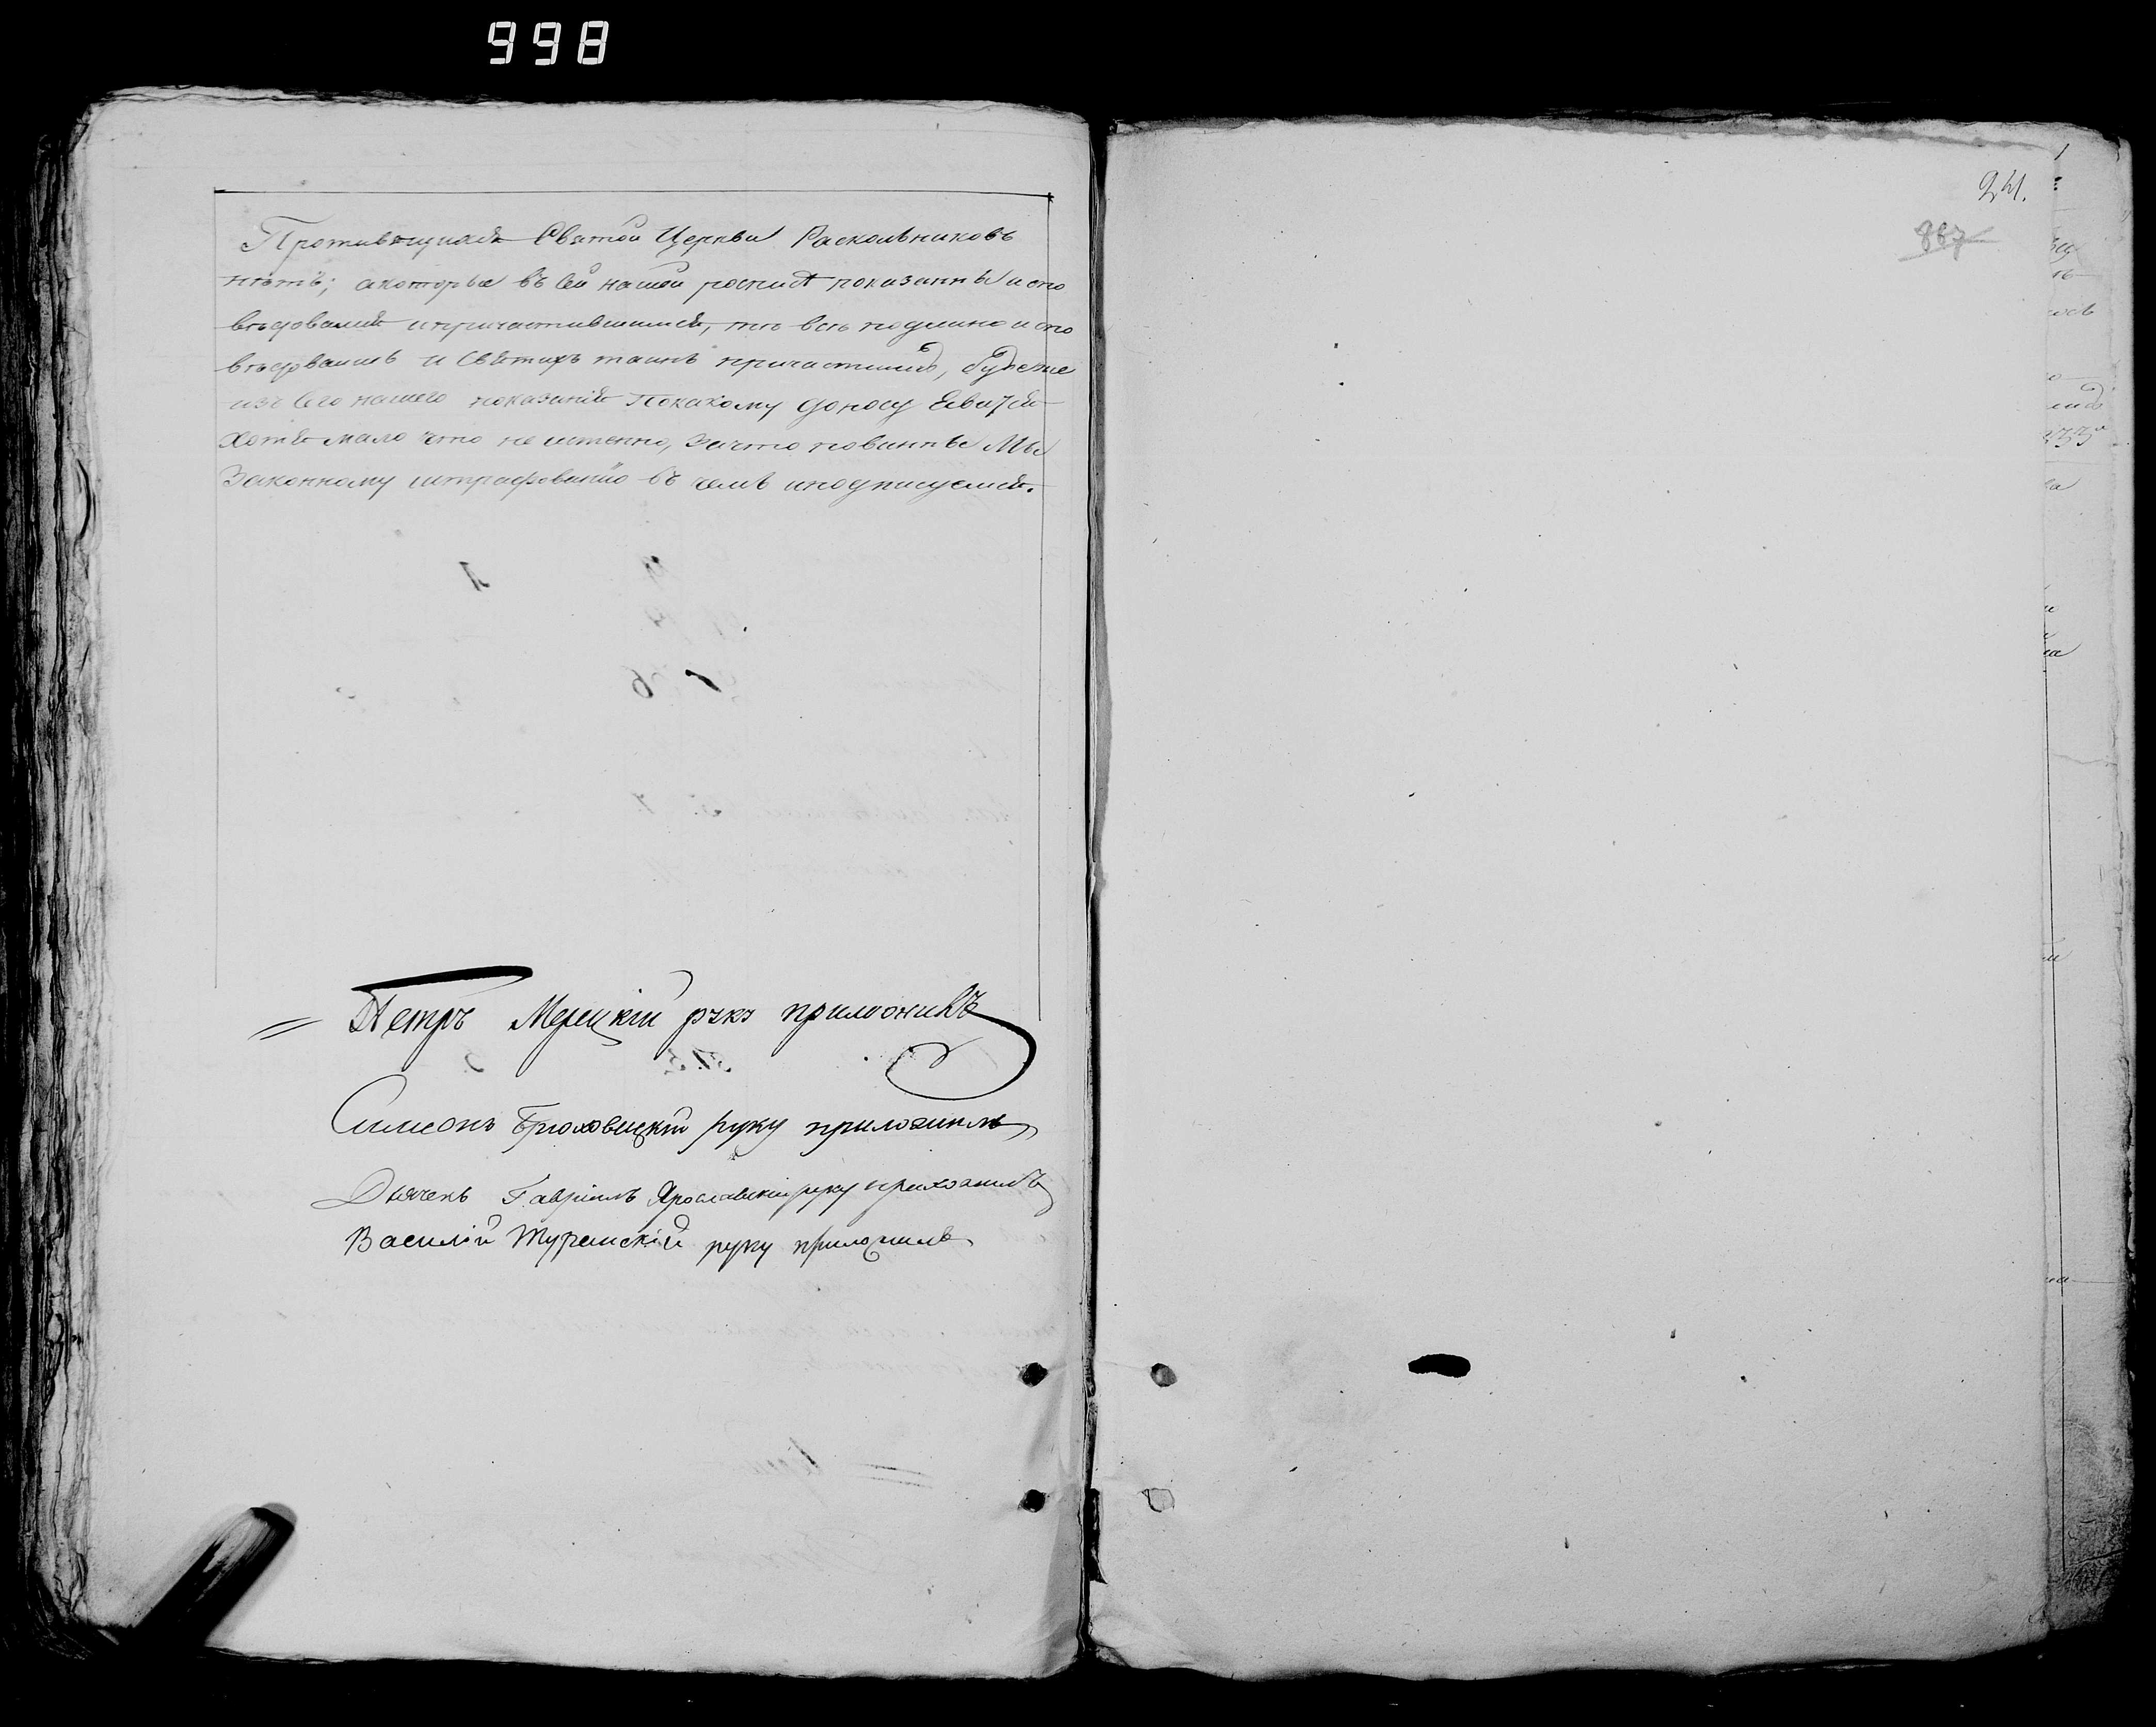 998
Противящихся Святой Церкви Раскольниковъ
нѣтъ; акоторые въ сей нашей росписѣ показанны испо
вѣдовались ипричастившимися, тѣ всѣ подлинно испо
вѣдовались и Святихъ таинъ причастились, будеже
изъ сего нашего показанія покакому доносу явится
хотя мало что не истенно, Зачто повинны Мы
Законному штрафованію въ чемъ иподписуемся.
Петръ Мерецкій руку приложивъ
Симеонъ Брюховецкій руку приложилъ
Дьячекъ Гавріилъ Ярославскій руку приложилъ
Василій руку приложилъ
241.
867